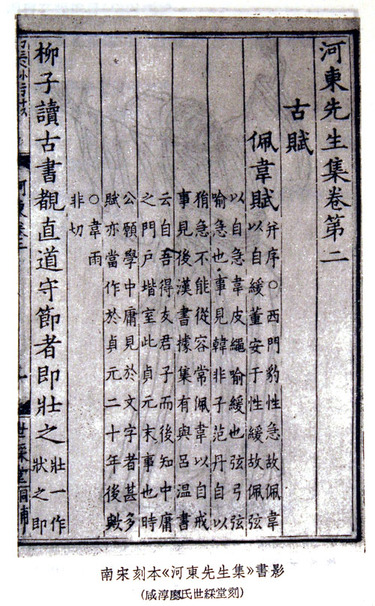 河東先生集卷第二
古賦
佩韋賦
并序○西門豹性急故佩韋
以自緩董安于性緩故佩弦
以自急韋皮繩喻緩也弦弓弦
喻急也事見韓非子范丹自以
狷急不能從容常佩韋以自戒
事見後漢書據集有與呂溫書
云自吾得友君子而後知中庸
之門戶堦室此貞元末事也時
公願學中庸見於文字者甚多
賦亦當作於貞元二十年後數
○韋雨
非切
柳子讀古書觀直道守節者即壯之
壯一作
狀之即
世綵堂
南宋刻本《河東先生集》書影
(咸淳廖氏世綵堂刻)